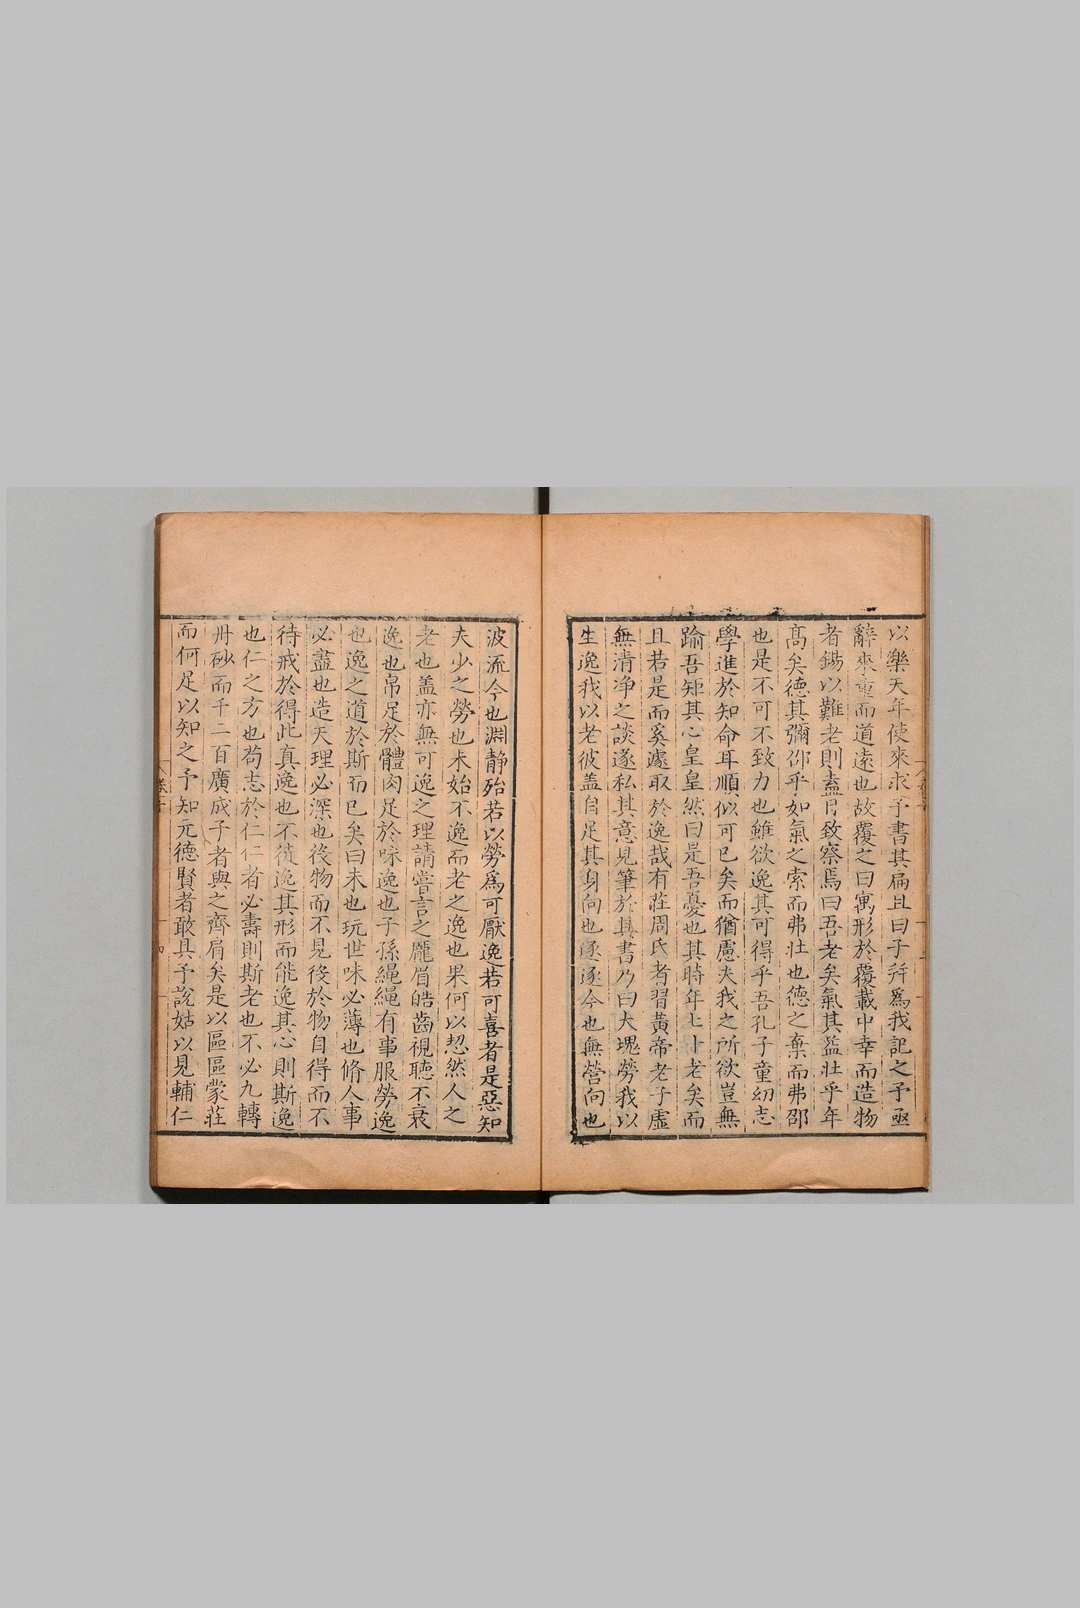 以樂天年使來求予書其扁且曰子并爲我記之予亟
辭來重而道遠也故覆之曰寓形於覆載中幸而造物
者錫以難老則盍胥致察焉曰吾老矣氣其益壯乎年
髙矣德其彌卲乎如氣之索而弗壯也德之棄而弗邵
也是不可不致力也雖欲逸其可得乎吾孔子童幼志
學進於知命耳順似可已矣而猶慮夫我之所欲豈無
踰吾矩其心皇皇然曰是吾憂也其時年七十老矣而
且若是而奚遽取於逸哉有莊周氏者習黃帝老子虛
無清浄之談遂私其意見筆於其書乃曰大塊勞我以
生逸我以老彼盖自足其身向也遂遂今也無營向也
波流今也淵静殆若以勞爲可厭逸若可喜者是惡知
夫少之勞也未始不逸而老之逸也果何以恝然人之
老也盖亦無可逸之理請嘗言之龎眉皓齒視聽不衰
逸也帛足於體肉足於味逸也子孫繩繩有事服勞逸
也逸之道於斯而已矣曰未也玩世味必薄也脩人事
必盡也造天理必深也役物而不見役於物自得而不
待戒於得此真逸也不徒逸其形而能逸其心則斯逸
也仁之方也苟志於仁仁者必壽則斯老也不必九轉
丹砂而千二百廣成子者與之齊肩矣是以區區蒙莊
而何足以知之予知元德賢者敢具予說姑以見輔仁